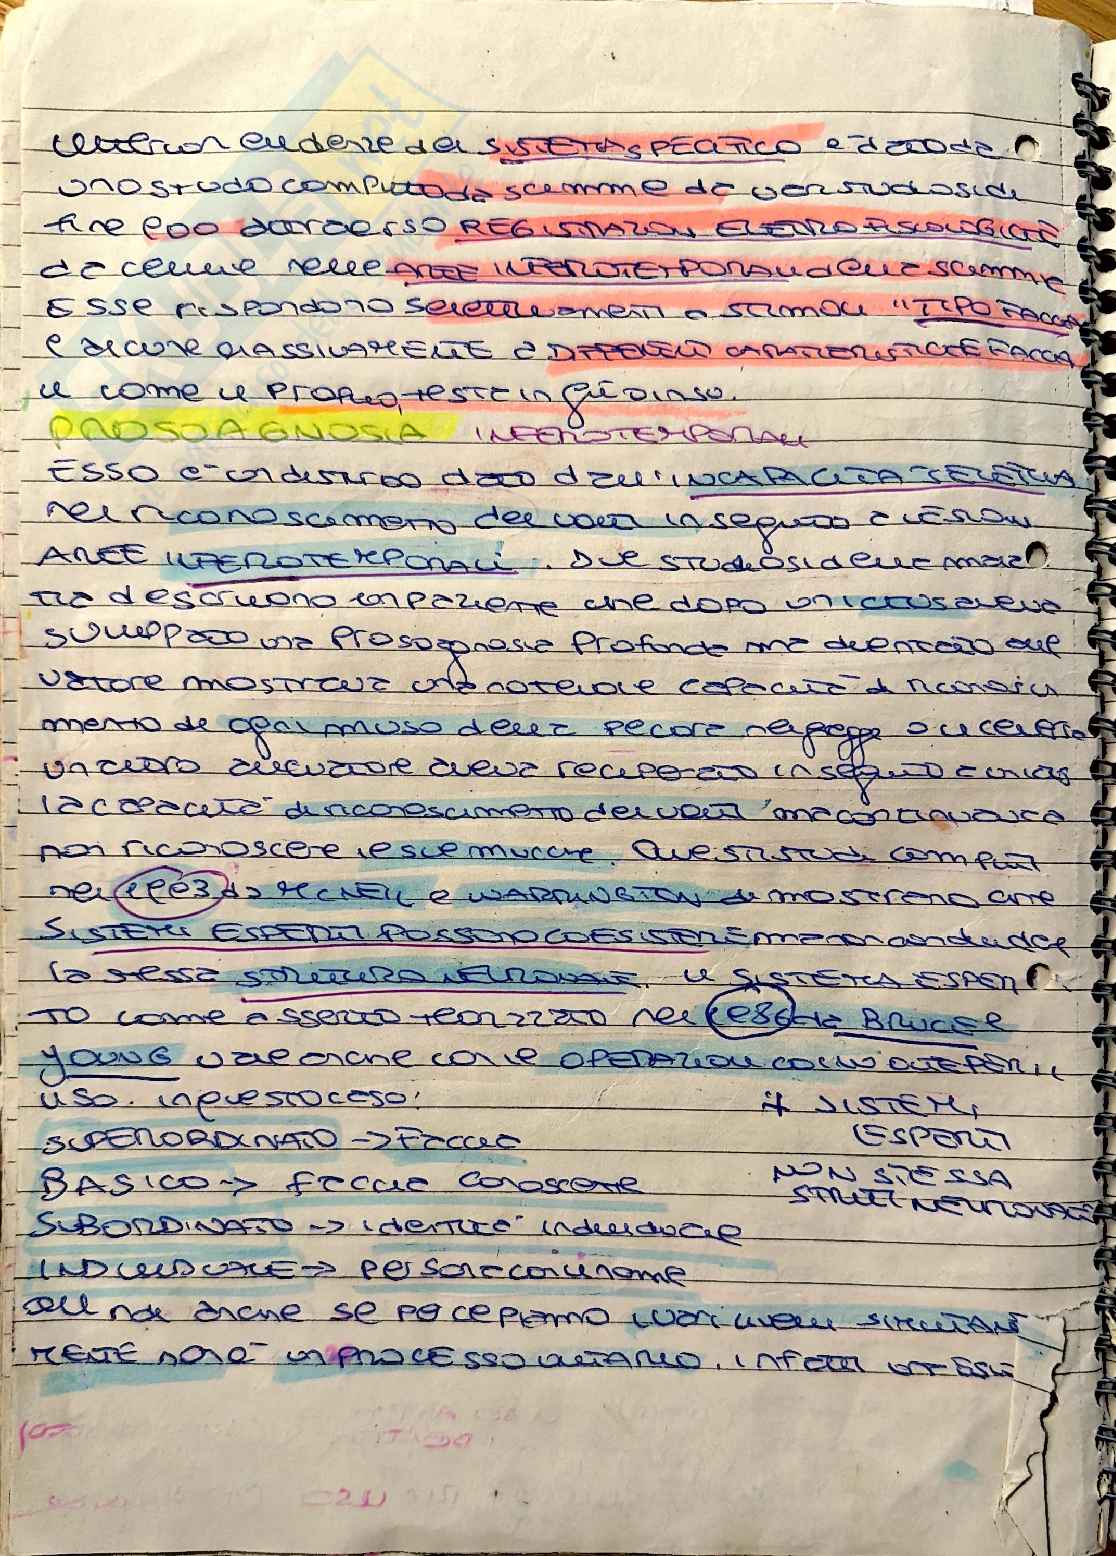 ulteriori evidenze del SISTEMA SPECIFICO è dato da
uno studio compiuto da scimmie da vari studiosi di
fine 900 attraverso REGISTRAZIONI ELETTROFISIOLOGICHE
da cellule nelle AREE INFEROTEMPORALI della scimmia
ESSE rispondono selettivamente a stimoli "TIPO FACCIA
e alcune MASSIVAMENTE a DIFFERENTI CARATTERISTICHE FACCIA
li come il PROFILO, testa in giù o in su.
PROSOAGNOSIA INFEROTEMPORALI
ESSO è un disturbo dato dall'INCAPACITÀ SELETTIVA
nel riconoscimento dei volti in seguito a LESIONI
AREE INFEROTEMPORALI. Due studiosi della
descrivono un paziente che dopo un ictus aveva
sviluppato una Prosognosia Profonda ma diventato alle
vatore mostrava una notevole capacità di riconosci
mento di ogni muso della pecora nel gregge
un altro allevatore aveva recuperato in seguito a un ictus
la capacità di riconoscimento dei volti ma continuava a
non riconoscere le sue mucche. Questi studi compiuti
nel 1993 da MCNEIL e WARRINGTON dimostrano che
SISTEMI ESPERTI POSSONO COESISTERE ma non condivide
la stessa STRUTTURA NEURONALE. Il SISTEMA ESPER
TO come assetto teorizzato nel 1986 da BRUCE e
YOUNG vale anche con le OPERAZIONI COGNITIVE PER il
VISO. in questo caso:
≠ SISTEMI
SUPERORDINATO -> Faccia
ESPERTI
BASICO -> faccia conoscente
NON STESSA
STRUTT NEURONALE
SUBORDINATO -> identità individuale
INDIVIDUALE -> persona con il nome
anche se percepiamo vari livelli SIMULTANEA
MENTE non è un PROCESSO UNITARIO. infatti